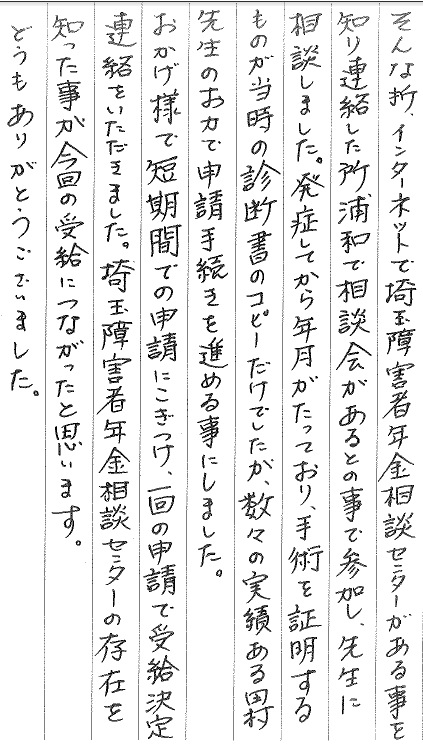 そんな折、インターネットで埼玉障害者年金相談センターがある事を
知り連絡した所浦和で相談会があるとの事で参加し、先生に
相談しました。発症してから年月がたっており、手術を証明する
ものが当時の診断書のコピーだけでしたが、数々の実績ある田村
先生のお力で申請手続きを進める事にしました。
おかげ様で短期間での申請にこぎつけ、一回の申請で受給決定
連絡をいただきました。埼玉障害者年金相談センターの存在を
知った事が今回の受給につながったと思います。
どうもありがとうございました。